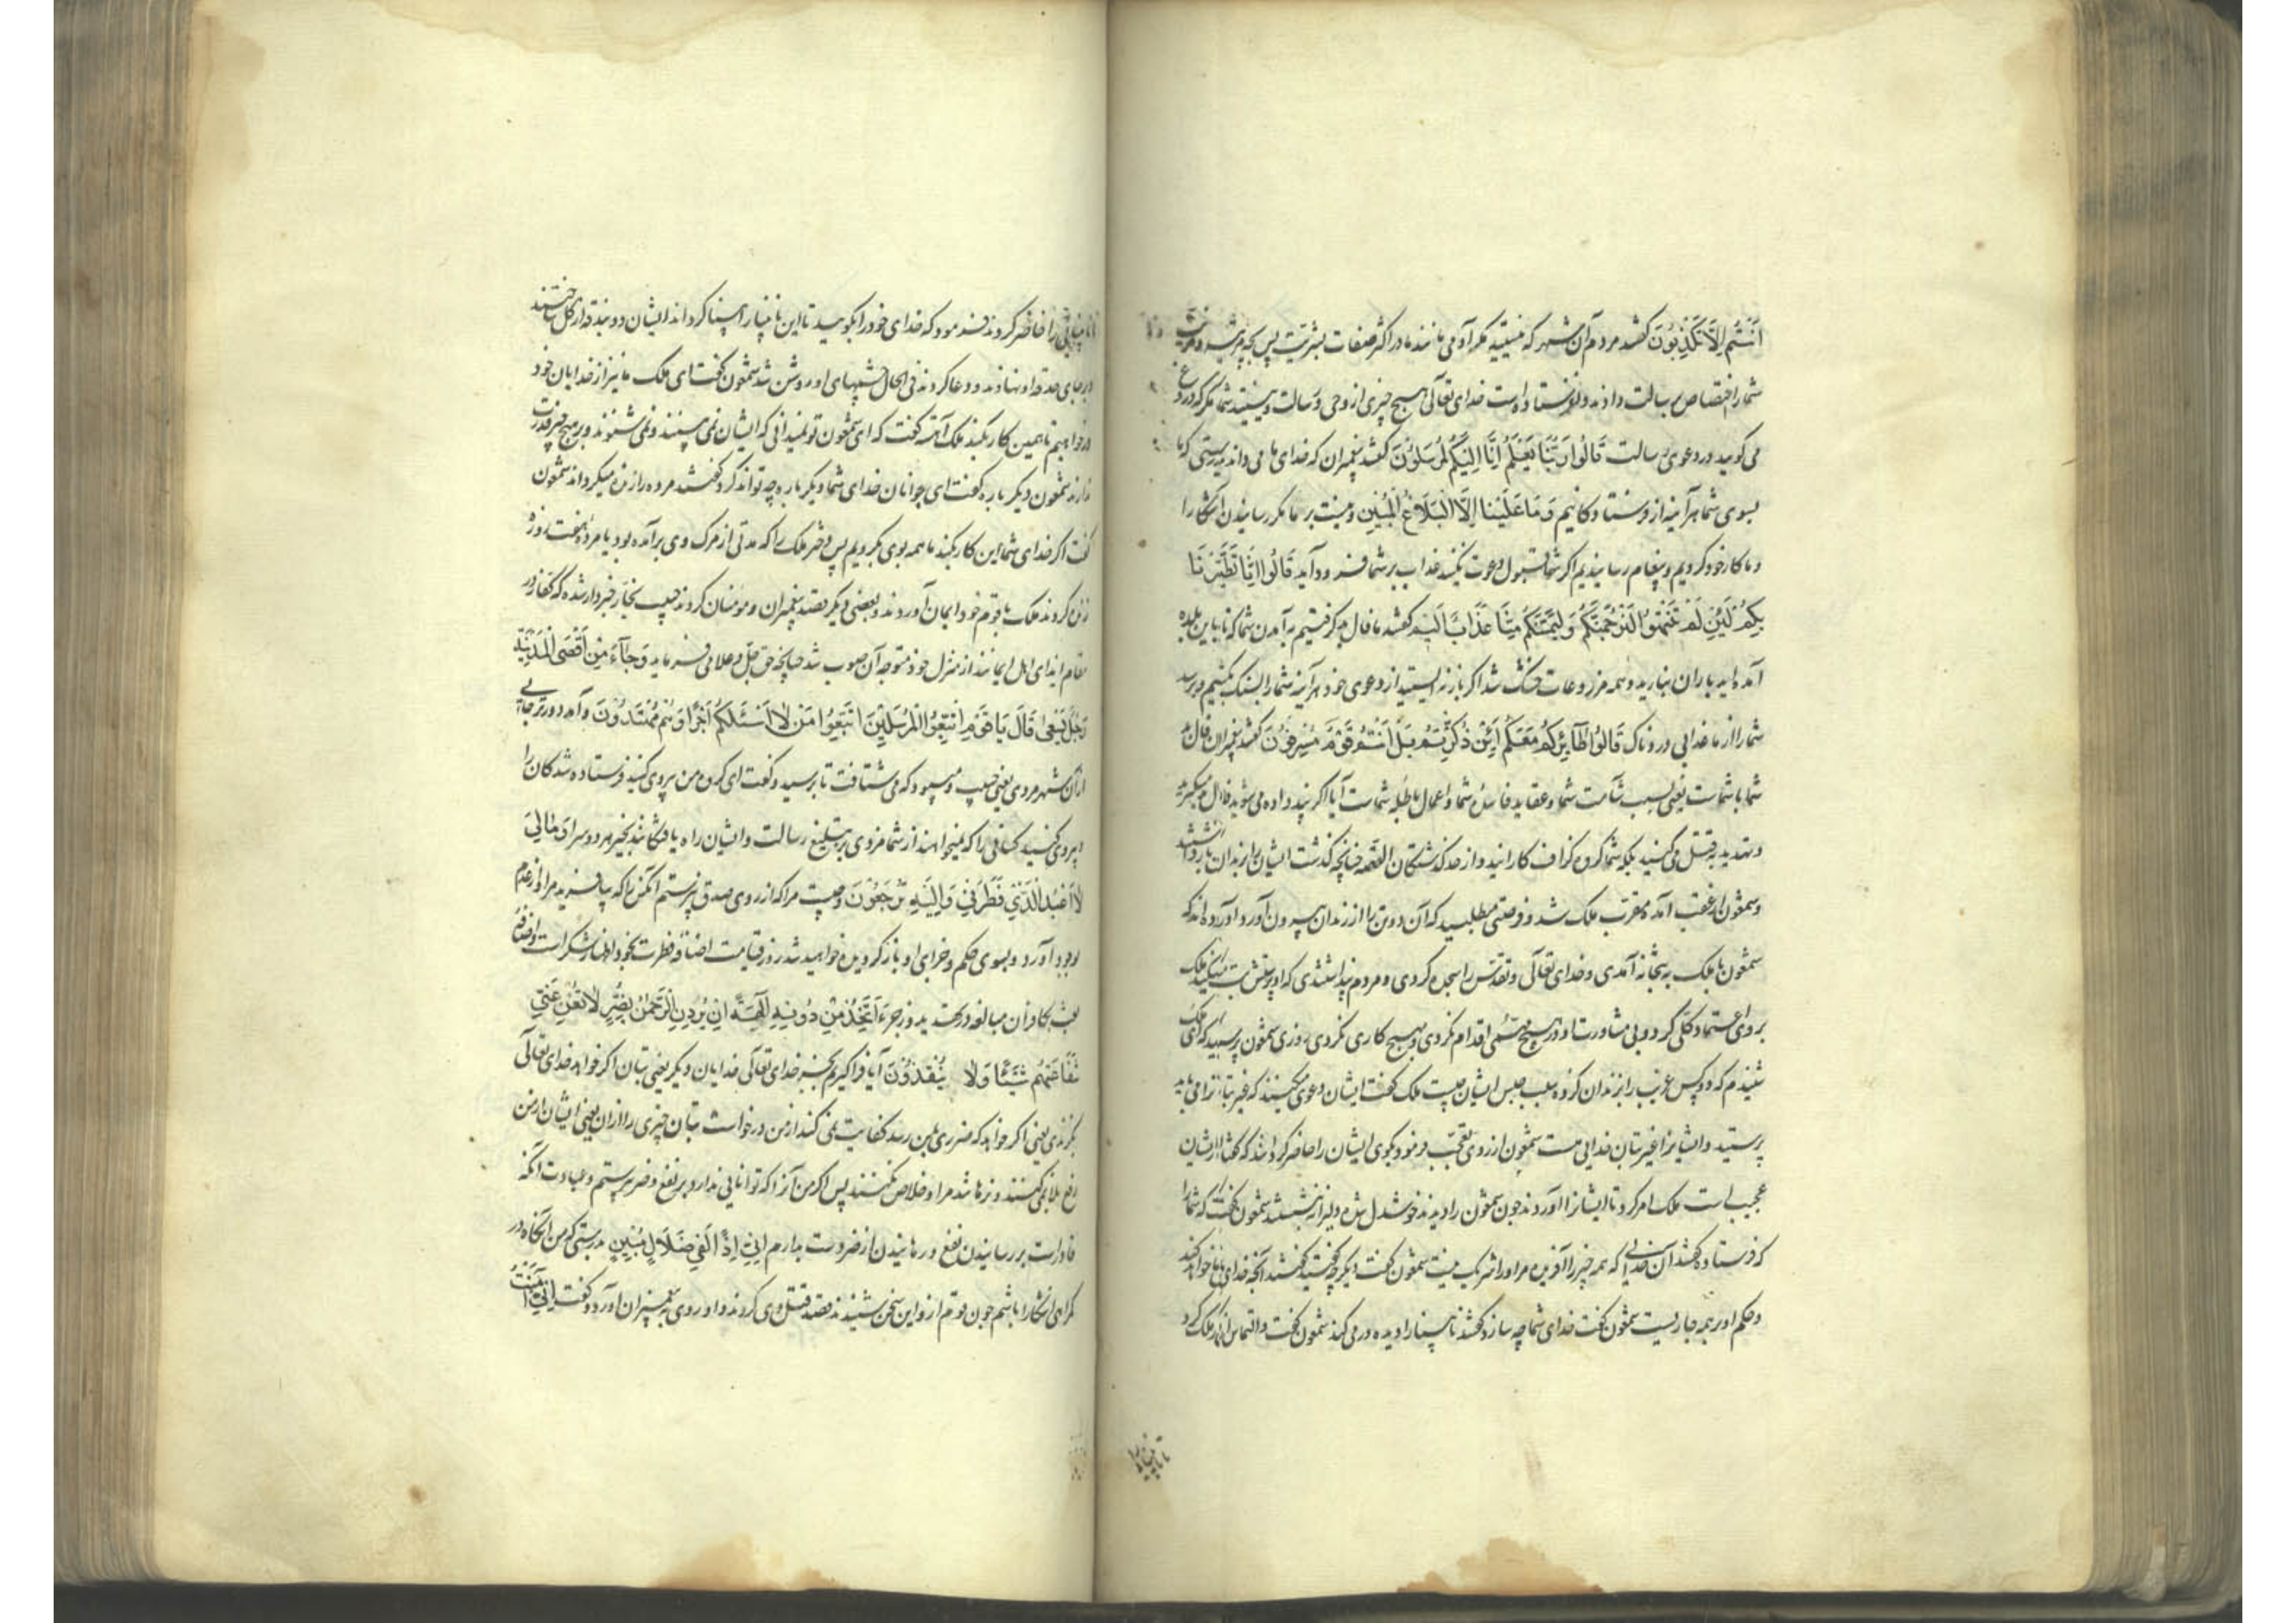 اَنْتُمْ اِلَّا تَكْذِبُونَ گفتند مردم آن شهر که نیستید مگر آدمی مانند ما در اکثر صفات بشریت پس بچه چیز
شما را اختصاص برسالت دادند و نفرستاده است خدای تعالی هیچ چیزی از وحی و رسالت و نیستید شما مگر که دروغ
می گویید در دعوی رسالت قَالُوا رَبُّنَا يَعْلَمُ اِنَّا اِلَيْكُمْ لَمُرْسَلُونَ گفتند پیغمبران که خدای ما می داند بدرستی که ما
بسوی شما هر آینه از فرستادگانیم وَمَا عَلَيْنَا اِلَّا الْبَلَاغُ الْمُبِينُ و نیست بر ما مگر رسانیدن آشکارا
و ما کار خود کردیم و پیغام رسانیدیم اگر شما قبول دعوت نکنید عذاب بر شما فرود آید قَالُوا اِنَّا تَطَيَّرْنَا
بِكُمْ لَئِنْ لَمْ تَنْتَهُوا لَنَرْجُمَنَّكُمْ وَلَيَمَسَّنَّكُمْ مِنَّا عَذَابٌ اَلِيمٌ گفتند ما فال بد گرفتیم به آمدن شما که تا باین بلده
آمده اید باران نبارید و همه مزروعات خشک شد اگر باز نه ایستید از دعوی خود هر آینه شما را بسنگ بکشیم و برسد
شما را از ما عذابی دردناک قَالُوا طَآئِرُكُمْ مَعَكُمْ اَئِنْ ذُكِّرْتُمْ بَلْ اَنْتُمْ قَوْمٌ مُسْرِفُونَ گفتند پیغمبران فال بد
شما با شماست یعنی بسبب شآمت شما و عقاید فاسده شما و اعمال باطله شماست آیا اگر پند داده می شوید فال بد میگیرید
و تهدید به قتل می کنید بلکه شما گروه گزاف کارانید و از حد گذشتگان القصه چنانچه گذشت ایشان را بزندان باز داشتند
و سمعون از عقب آمده مقرب ملک شد و فرصتی می طلبید که آن دو تن را از زندان بیرون آورد آورده اند که
شمعون با ملک به بتخانه آمدی و خدای تعالی و تقدس را سجده کردی و مردم پنداشتندی که او پرستش بت میکند ملک
بر وی اعتماد کلی کرد و بی مشاورت او در هیچ مهمی اقدام نکردی و هیچ کاری نکردی روزی سمعون پرسید که ای ملک
شنیدم که دو کس غریب را بزندان کرده سبب حبس ایشان چیست ملک گفت ایشان دعوی میکنند که غیر بتان را می باید
پرستید و ایشان را غیر بتان خدایی هست سمعون از روی تعجب فرمود بگوی ایشان را حاضر گردانند که گفتار ایشان
عجیب است ملک امر کرد تا ایشان را آوردند چون سمعون را دیدند خوشدل شده دلیرانه نشستند سمعون گفت که شما را
که فرستاده گفتند آن خدایی که همه چیز را آفریده مر او را شریک نیست سمعون گفت دیگر چه گفتید گفتند آنچه خدای ما خواهد کند
و حکم او بر همه جاریست سمعون گفت خدای شما چه سازد گفتند نابینا را دیده ور می کند شمعون گفت و التماس از ملک کرد
تا نابینا را
تا نابینایی را حاضر کردند فرمود که خدای خود را بگویید تا این نابینا را بینا گرداند ایشان دو بندقه از گل ساختند
و بر جای حدقه او نهادند و دعا کردند فی الحال چشمهای او روشن شد سمعون گفت ای ملک ما نیز از خدایان خود
درخواهیم تا همین کار بکنند ملک آهسته گفت که ای سمعون تو نمیدانی که ایشان نمی بینند و نمی شنوند و بر هیچ چیز قدرت
ندارند شمعون دیگر باره گفت ای جوانان خدای شما دیگر باره چه تواند کرد گفتند مرده را زنده میگرداند سمعون
گفت اگر خدای شما این کار بکند ما همه بوی بگرویم پس دختر ملک را که مدتی از مرگ وی برآمده بود یا مرده هفت روزه
زنده کردند ملک با قوم خود ایمان آوردند و بعضی دیگر قصد پیغمبران و مومنان کردند حبیب نجار خبردار شد که کفار در
مقام ایذای اهل ایمانند از منزل خود متوجه آن صوب شد چنانچه حق جل و علا می فرماید وَجَآءَ مِنْ اَقْصَى الْمَدِينَةِ
رَجُلٌ يَسْعٰى قَالَ يَا قَوْمِ اتَّبِعُوا الْمُرْسَلِينَ اتَّبِعُوا مَنْ لَا يَسْئَلُكُمْ اَجْرًا وَهُمْ مُهْتَدُونَ و آمد از دورتر جایی
از آن شهر مردی یعنی حبیب که می شتافت تا برسید و گفت ای گروه من پیروی کنید فرستاده شدگان را
پیروی کنید کسانی را که نمیخواهند از شما مزدی بر تبلیغ رسالت و ایشان راه یافتگانند بخیر هر دو سرا وَمَالِيَ
لَا اَعْبُدُ الَّذِي فَطَرَنِي وَاِلَيْهِ تُرْجَعُونَ و چیست مرا که از روی صدق نپرستم آنکس را که بیافرید مرا و از عدم
بوجود آورد و بسوی حکم و جزای او باز گردیده خواهید شد روز قیامت اضافه فطرت بخود اظهار شکر است و اضافه
بعث بکافران مبالغه در تهدید و زجر ءَاَتَّخِذُ مِنْ دُونِهِ اٰلِهَةً اِنْ يُرِدْنِ الرَّحْمٰنُ بِضُرٍّ لَا تُغْنِ عَنِّي
شَفَاعَتُهُمْ شَيْئًا وَلَا يُنْقِذُونَ آیا فراگیریم بجز خدای تعالی خدایان دیگر یعنی بتان اگر خواهد خدای تعالی
گزندی یعنی اگر خواهد که ضرری بمن رسد کفایت نمی کند از من درخواست بتان چیزی را از آن یعنی ایشان از من
رفع بلا نمی کنند و نرهانند مرا و خلاص نکنند پس اگر من آنرا که توانایی ندارد بر نفع و ضر پرستم و عبادت آنکه
قادر است بر رسانیدن نفع و رهانیدن از ضر دست بدارم اِنِّي اِذًا لَفِي ضَلَالٍ مُبِينٍ بدرستی که من آنگاه در
گمراهی آشکارا باشم چون قوم ازو این سخن شنیدند قصد قتل وی کردند و او روی به پیغمبران آورد و گفت اِنِّي اٰمَنْتُ